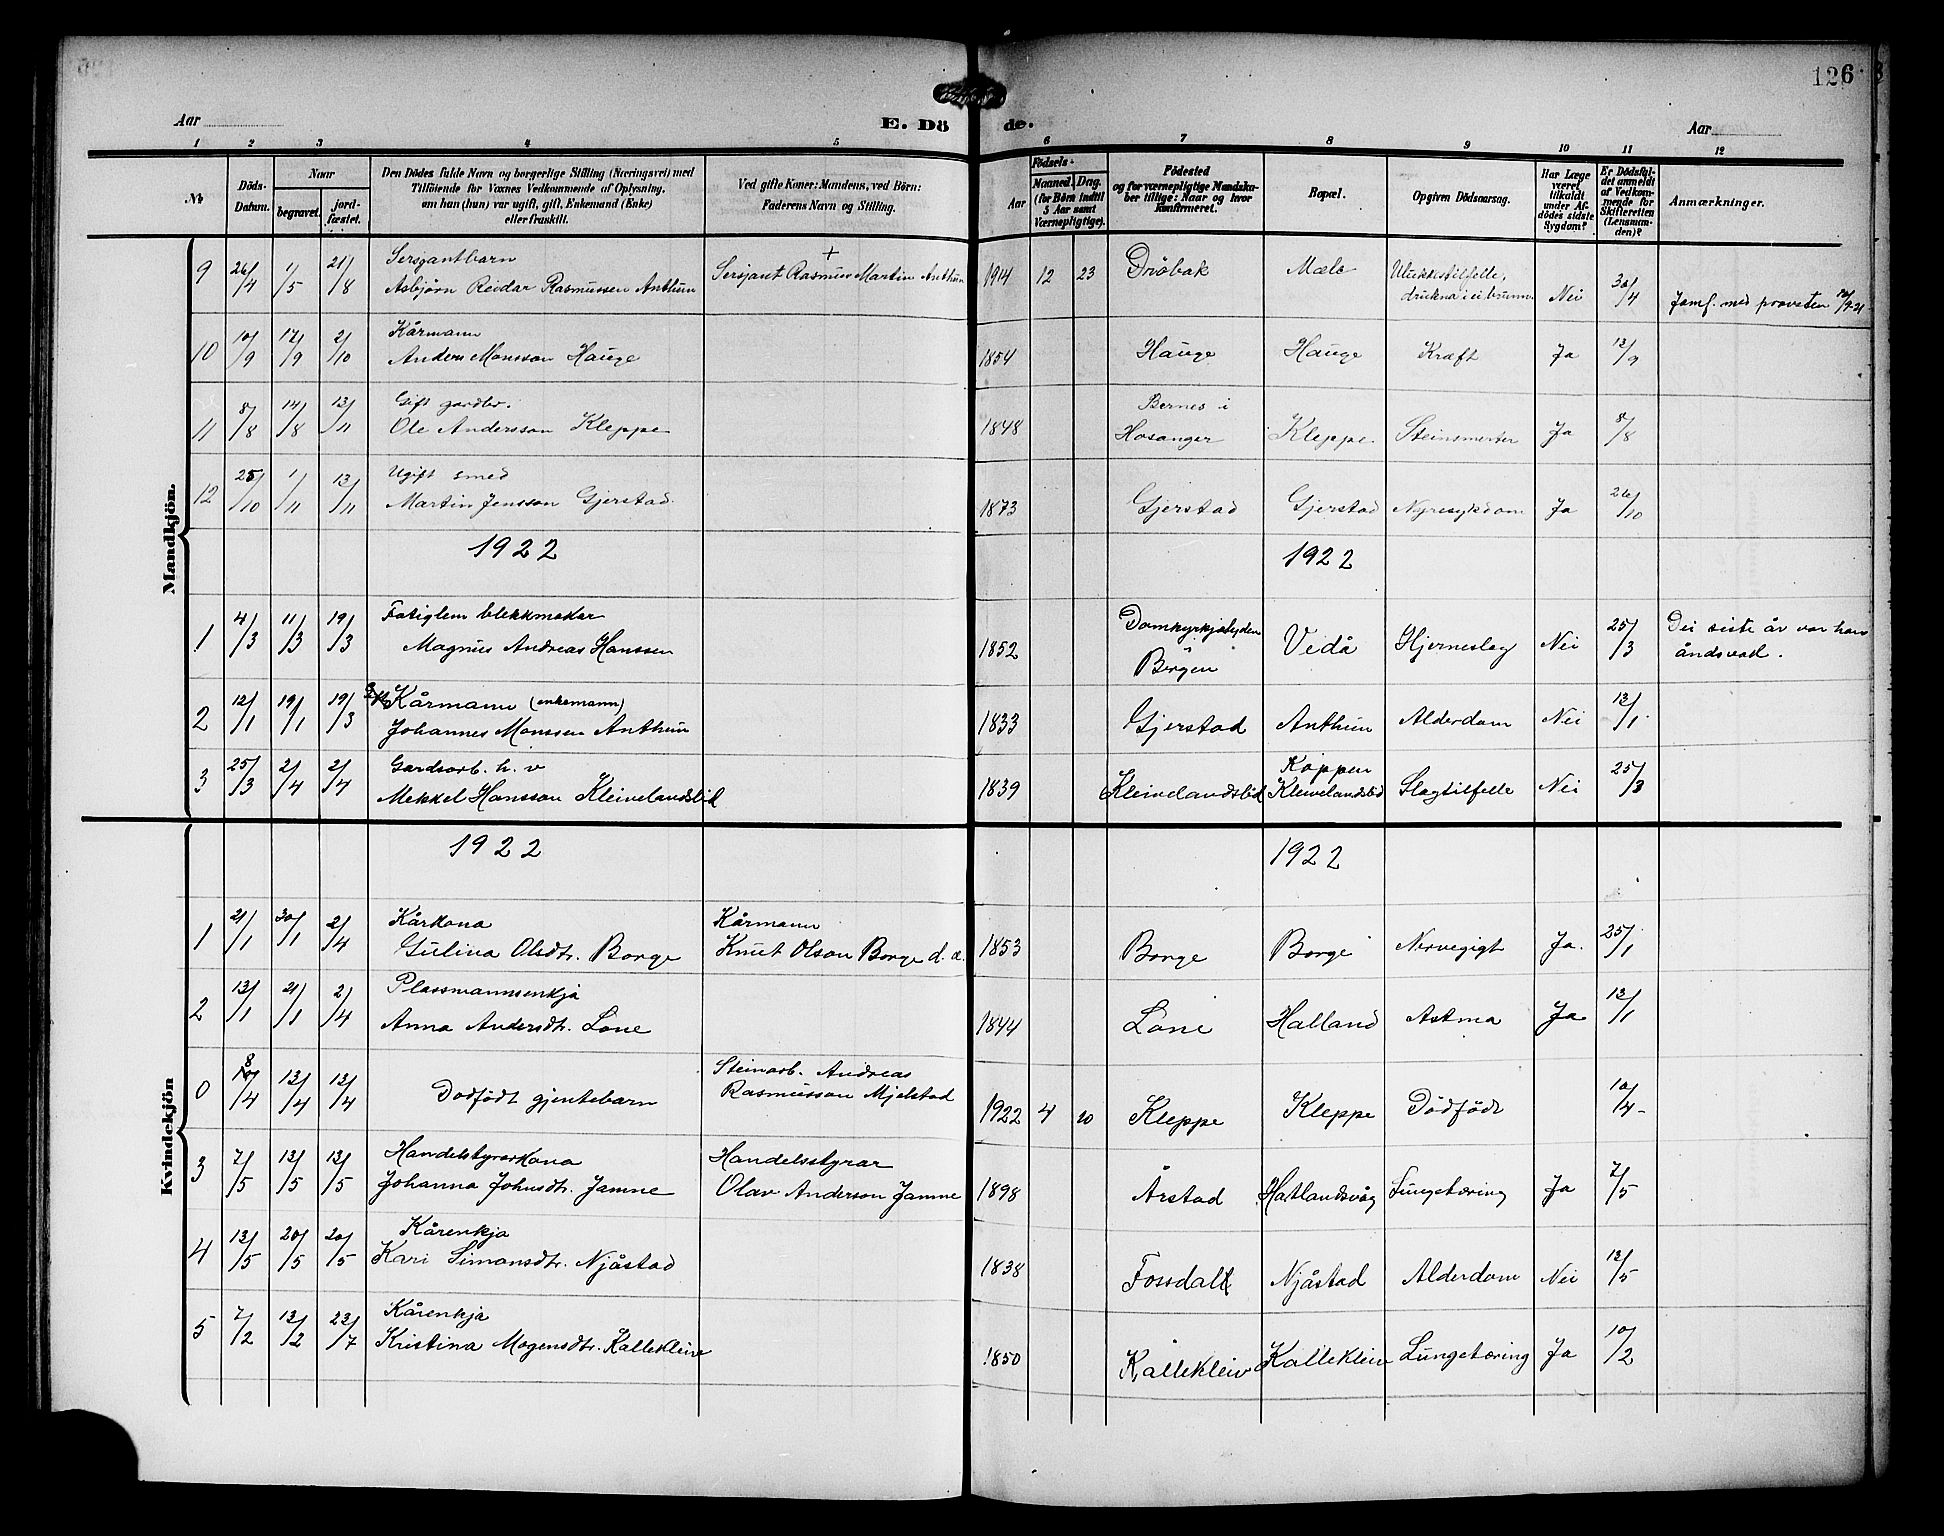 126
Aar
E. Dö
de.
Aar
1 2 3 4 5 6 7 8 9 10 11 12
No
Döds-Datum.
Naar
begravet.
jordfæstet.
Den Dödes fulde Navn og borgerlige Stilling (Næringsvei) med
Tilföiende for Voxnes Vedkommende af Oplysning,
om han (hun) var ugift, gift, Enkemand (Enke)
eller fraskilt.
Ved gifte Koner: Mandens, ved Börn:
Faderens Navn og Stilling.
Födsels-
Aar
Maaned. Dag.
(for Börn indtil
5 Aar samt
Værnepligtige).
Födested
og for værnepligtige Mandskaber tillige: Naar og hvor
konfirmeret.
Bopæl.
Opgiven Dödsaarsag.
Har Læge været tilkaldt under Afdödes sidste Sygdom?
Er Dödsfaldet anmeldt af Vedkommende for Skifteretten (Lensmanden)?
Anmærkninger.
Mandkjön.
9 26/4 1/5 21/8 Sersjantbarn
Asbjörn Reidar Rasmussen Anthun Sersjant Rasmus Martin Anthun + 1914 12 23 Dröbak Mæle Ulukkestilfelle, drukna i ei brunn. Nei 30/4 Jamf. med provsten
10 10/9 17/9 2/10 Kårmann
Anders Monsson Hauge 1854 Hauge Hauge Kræft Ja 12/9
11 8/8 14/8 13/11 Gift gardbr.
Ole Andersson Kleppe 1848 Bernes i Hosanger Kleppe Steinsmerter Ja 8/8
12 25/10 1/11 13/11 Ugift smed
Martin Jensson Gjerstad 1873 Gjerstad Gjerstad Nyresykdom Ja 26/10
1922 1922
1 4/3 11/3 19/3 Fatiglem blekkmakar
Magnus Andreas Hanssen 1852 Domkyrkjebyden Bergen Vedå Hjerneslag Nei 25/3 Dei siste år var han åndsvad.
2 12/1 19/1 19/3 Kårmann (enkemann)
Johannes Monssen Anthun 1833 Gjerstad Anthun Alderdom Nei 13/1
3 25/3 2/4 2/4 Gardsarb. h. v
Mekkel Hansson Kleivelandslid 1839 Kleivelandslid Koppen Kleivelandslid Slagtilfelle Nei 25/3
Kvindekjön
1922 1922
1 21/1 30/1 2/4 Kårkona
Gulina Olsdtr. Borge Kårmann
Knut Olson Borge d. æ. 1853 Borge Borge Nervegigt Ja. 25/1
2 13/1 21/1 2/4 Plassmannsenkja
Anna Andersdtr. Lone 1844 Lone Halland Astma Ja 13/1
0 8/4 13/4 13/4 Dødfödt gjentebarn Steinarb. Andreas
Rasmusson Mjelstad 1922 4 10 Kleppe Kleppe Dödfödt 10/4
3 7/5 13/5 13/5 Handelstyrarkona
Johanna Johnsdtr. Jamne Handelsstyrar
Olav Anderson Jamne 1898 Årstad Hatlandsvåg Lungetæring Ja 7/5
4 13/5 20/5 20/5 Kårenkja
Kari Simonsdtr. Njåstad 1838 Fossdal Njåstad Alderdom Nei 12/5
5 7/2 13/2 23/7 Kårenkja
Kristina Mogensdtr. Kallekleiv 1850 Kallekleiv Kallekleiv Lungetæring Ja 10/2